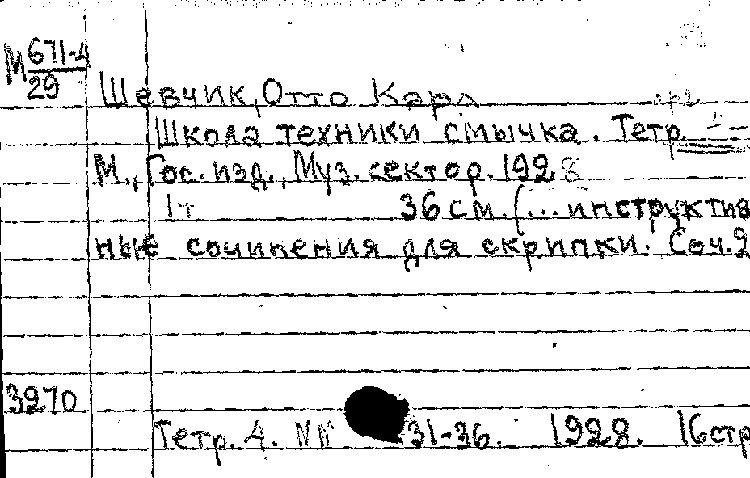 М 671-4
29
Шевчик, Отто Карл
Школа техники смычка. Тетр.
М., Гос. изд., Муз. сектор. 1928
1т 36 см. (... инструктив
ные сочинения для скрипки. Соч. 2
3270
Тетр. 4. NN 31-36. 1928. 16 стр